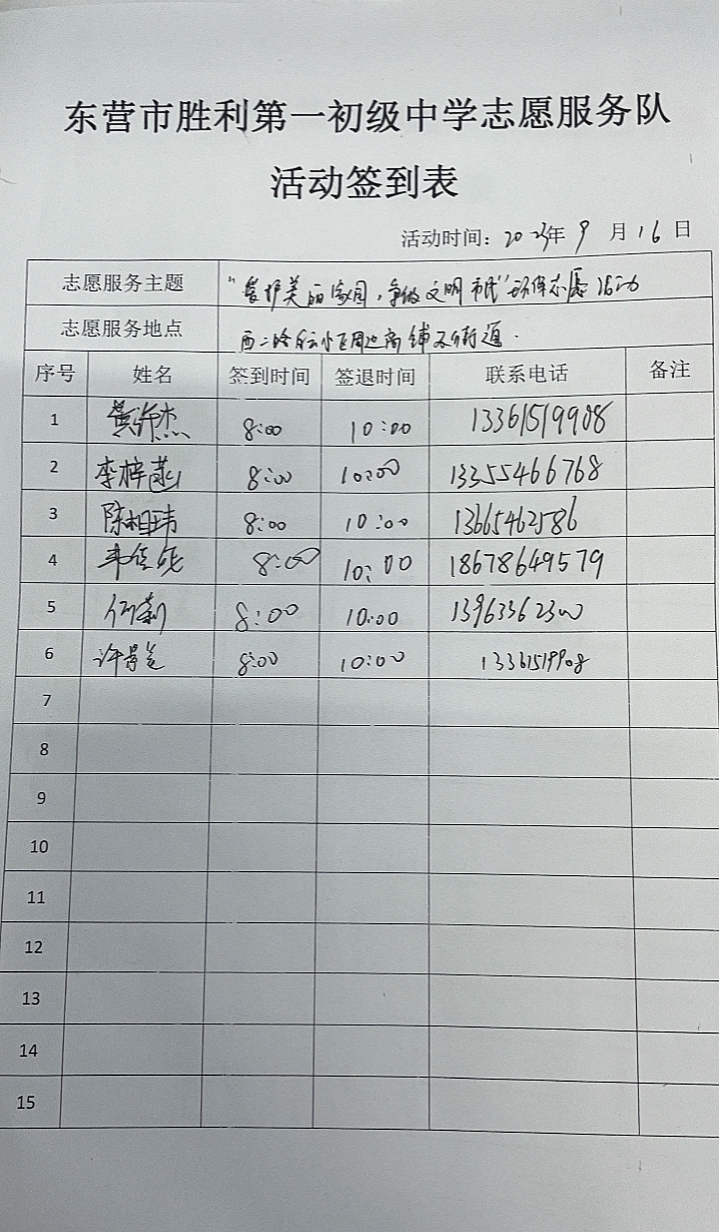 东营市胜利第一初级中学志愿服务队
活动签到表
活动时间：2023年 9 月 16 日
志愿服务主题 “爱护美丽家园，争做文明市民”环保志愿活动
志愿服务地点 西二路 小区周边商铺及街道.
序号 姓名 签到时间 签退时间 联系电话 备注
1 黄许杰 8:00 10:00 13361519908
2 李梓菡 8:00 10:00 13355466768
3 陈相玮 8:00 10:00 13665462586
4 8:00 10:00 18678649579
5 何莉 8:00 10:00 13963362300
6 许景芝 8:00 10:00 13361519908
7
8
9
10
11
12
13
14
15